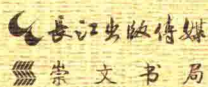 長江出版傳媒
崇文书局